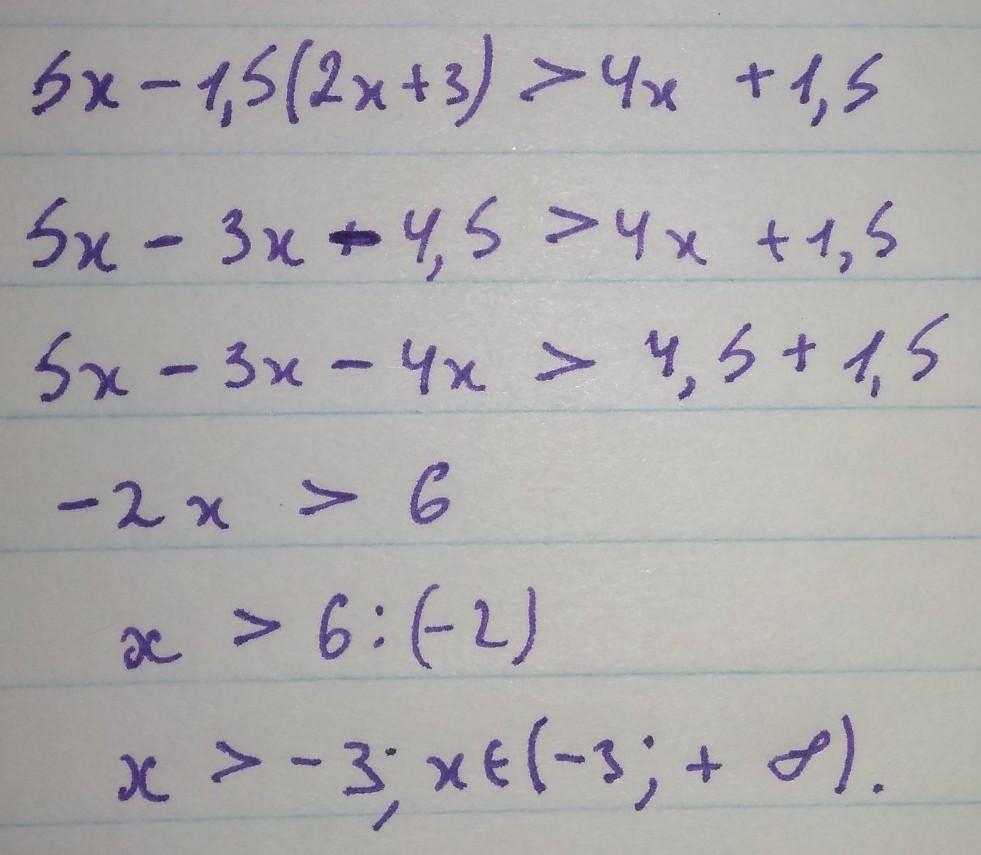 5x - 1,5(2x+3) > 4x + 1,5
5x - 3x - 4,5 > 4x + 1,5
5x - 3x - 4x > 4,5 + 1,5
-2x > 6
x > 6:(-2)
x > -3; x∈(-3; + ∞).